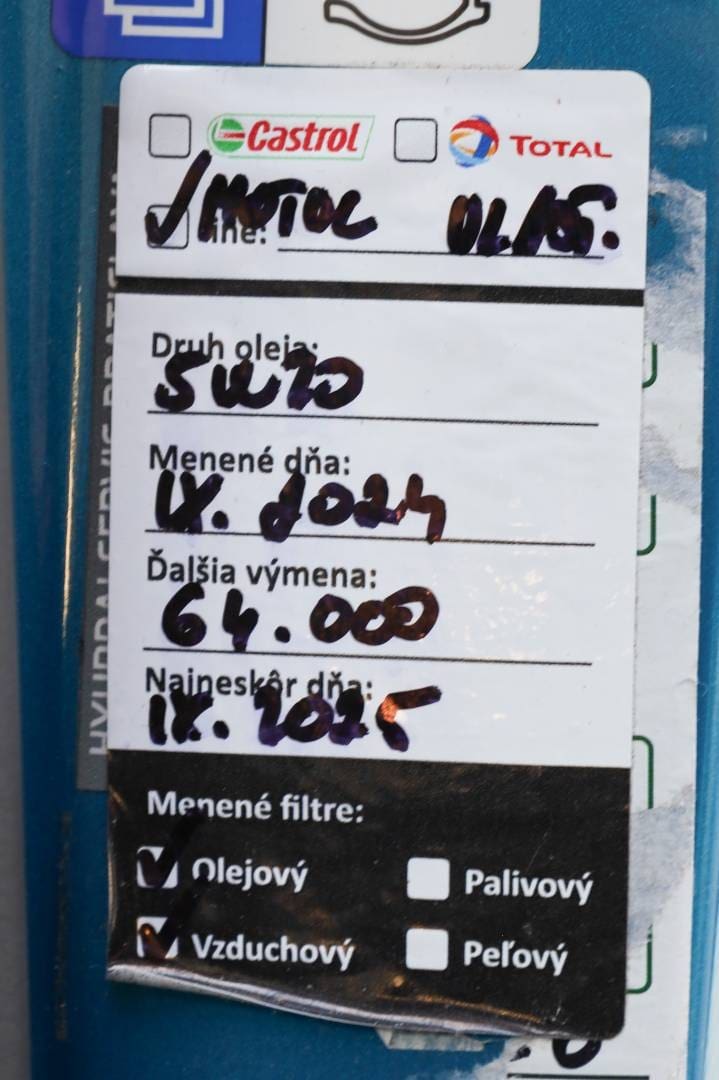 Castrol TOTAL
Iné: MOTUL
Druh oleja:
5W20
Menené dňa:
IX. 2024
Ďalšia výmena:
64.000
Najneskôr dňa:
IX. 2025
Menené filtre:
Olejový Palivový
Vzduchový Peľový